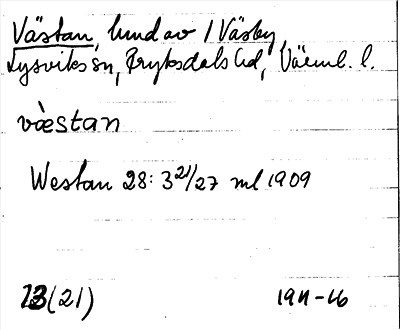 Västan, hmd av 1 Väsby,
Lysviks sn, Fryksdals hd, Värml. l.
væ̀stan
Westan 28: 3 21/27 ml 1909
23(21)